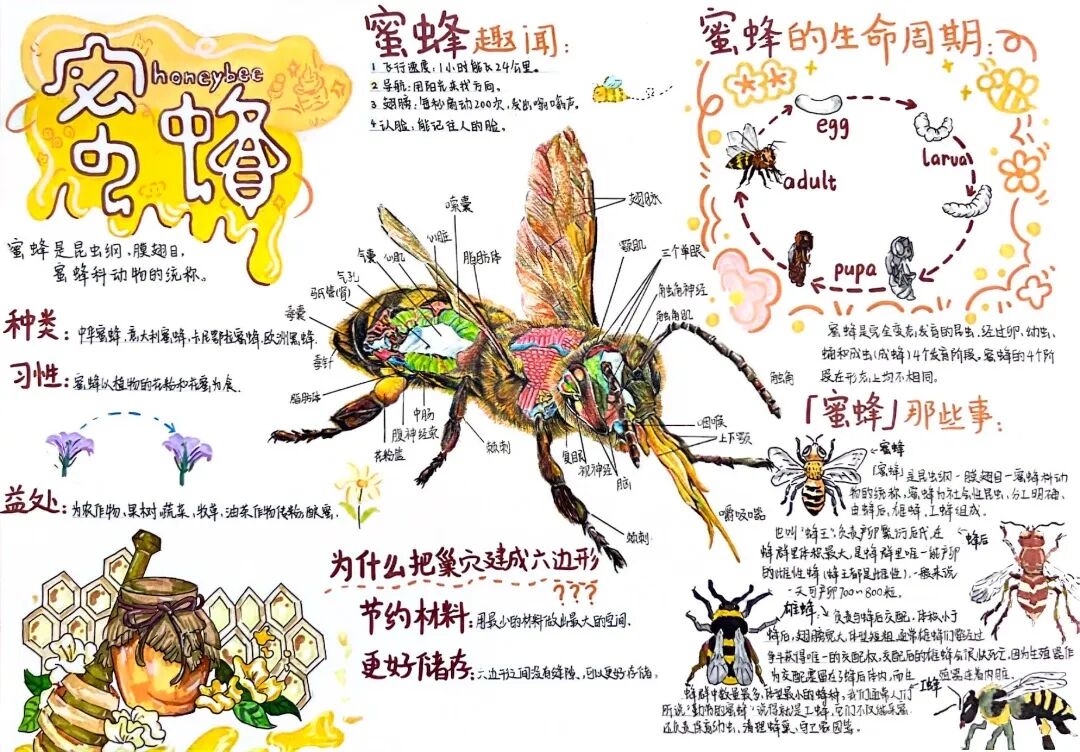 蜜蜂
honeybee
蜜蜂是昆虫纲、膜翅目、
蜜蜂科动物的统称。
种类：中华蜜蜂、意大利蜜蜂、卡尼鄂拉蜜蜂、欧洲黑蜂
习性：蜜蜂以植物的花粉和花蜜为食。
益处：为农作物、果树、蔬菜、牧草、油茶作物传粉，酿蜜
蜜蜂趣闻：
1 飞行速度：1小时能飞24公里。
2 导航：用阳光来找方向。
3 翅膀：每秒扇动200次，发出嗡嗡声。
4 认脸：能记住人的脸。
嗉囊
心脏
脂肪体
气囊
心肌
气孔
马氏管(肾)
毒囊
毒针
脂肪体
中肠
腹神经索
花粉篮
棘刺
翅脉
颚肌
三个单眼
触角神经
触角肌
触角
咽喉
上下颚
复眼
视神经
脑
嚼吸口器
棘刺
为什么把巢穴建成六边形
???
节约材料：用最少的材料做出最大的空间。
更好储存：六边形之间没有缝隙，可以更好存储。
蜜蜂的生命周期：
egg
larva
adult
pupa
蜜蜂是完全变态发育的昆虫，经过卵、幼虫、
蛹和成虫(成蜂)4个发育阶段。蜜蜂的4个阶
段在形态上均不相同。
「蜜蜂」那些事：
蜜蜂
「蜜蜂」是昆虫纲－膜翅目－蜜蜂科动
物的统称，蜜蜂为社会性昆虫，分工明确，
由蜂后、雄蜂、工蜂组成。
蜂后
也叫"蜂王"，负责产卵繁衍后代，在
蜂群里体格最大，是蜂群里唯一能产卵
的雌性蜂(蜂王都是雌性)。一般来说
一天可产卵700～800粒。
雄蜂：负责与蜂后交配，体格小于
蜂后，翅膀宽大，体型粗，通常雄蜂们需通过
争斗获得唯一的交配权，交配后的雄蜂会很快死亡，因为生殖器作
为交配器留在了蜂后体内，而生
殖器连着内脏。
工蜂
蜂群中数量最多，体型最小的蜂种，我们通常人们
所说"勤劳的蜜蜂"说得就是工蜂，它们不仅给采蜜
还负责保育幼虫，清理蜂巢，守卫家园等。